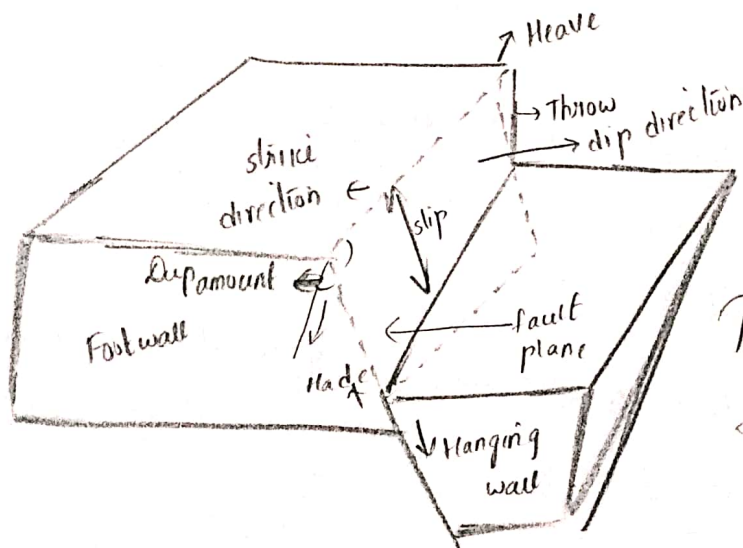 Heave
Throw
dip direction
strike
direction
slip
Dip amount
Foot wall
fault
plane
Hade
Hanging
wall